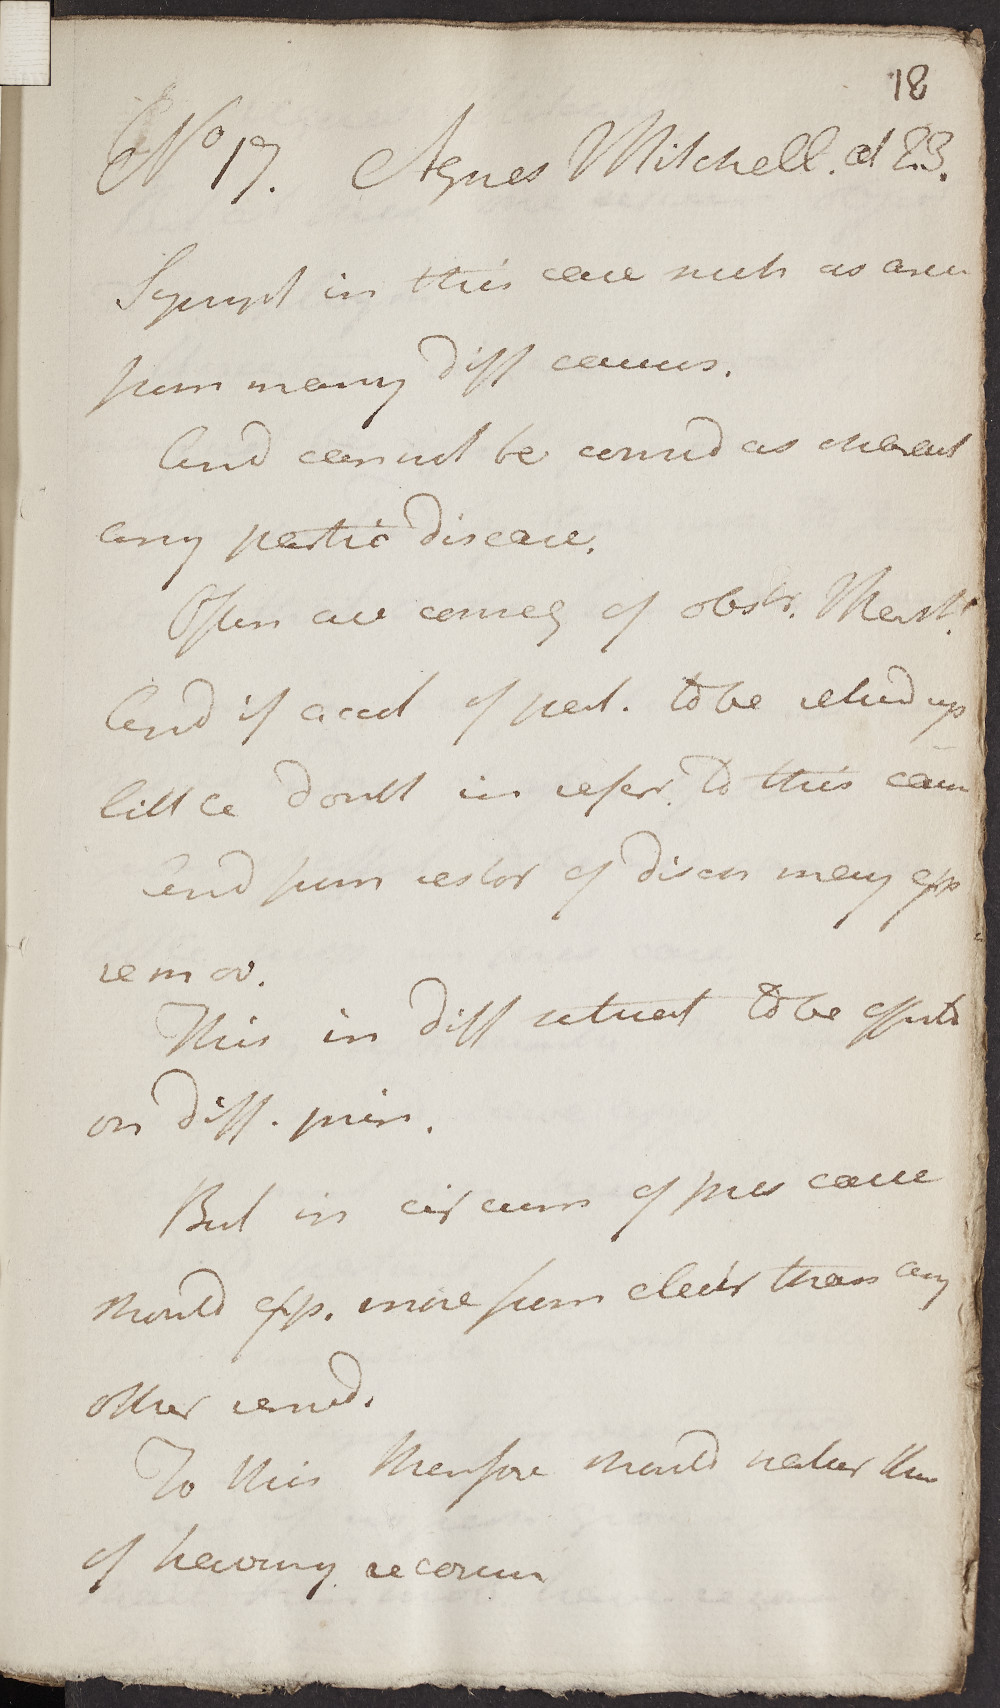 18
No 17. Agnes Mitchell. æt 23.
Sympt in this case such as arise
from many diff causes.
And cannot be consid as
any partic disease.
Often are conseq of obstr. Menst.
And if acct of pat. to be relied up
little doubt in referr. to this cau
And from restor of disch may exp
remov.
This in diff situat to be effected
on diff. prin.
But in circum of pres case
should exp. more from electr than any
other remed.
To this therefore should rather think
of having recourse